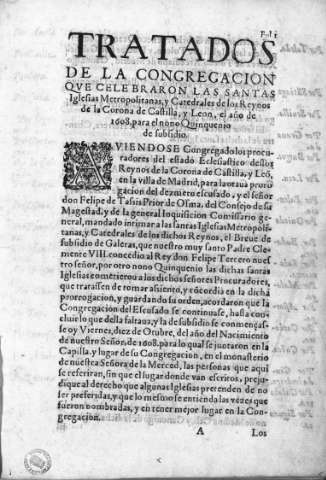 Fol 1
TRATADOS
DE LA CONGREGACION
QVE CELEBRARON LAS SANTAS
Iglesias Metropolitanas, y Catedrales de los Reynos
de la Corona de Castilla, y Leon, el año de
1608. para el nono Quinquenio
de subsidio.
AVIENDOSE Congregado los procu-
radores del estado Eclesiastico destos
Reynos de la Corona de Castilla, y Leõ
en la villa de Madrid, para la otaua proro-
gacion del dezmero escusado, y el señor
don Felipe de Tassis Prior de Osma, del Consejo de su
Magestad, y de la general Inquisicion Comissario ge-
neral, mandado intimar a las santas Iglesias Metropoli-
tanas, y Catedrales de los dichos Reynos, el Breue de
subsidio de Galeras, que nuestro muy santo Padre Cleme
mente VIII. concedio al Rey don Felipe Tercero nues-
tro señor, por otro nono Quinquenio las dichas santas
Iglesias cometieron a los dichos señores Procuradores,
que tratassen de tomar assiento, y cõcordia en la dicha
prorrogacion, y guardando su orden, acordaron que la
Congregacion del Escusado se continuasse, hasta con-
cluir lo que della faltaua, y la de subsidio se conmençasse
oy Viernes, diez de Otubre, del año del Nacimiento
de nuestro Señor, de 1608. para lo qual se juntaron en la
Capilla, y lugar de su Congregacion, en el monasterio
de nuestra Señora de la Merced, las personas que aqui
se referiran, sin que el lugar donde van escritos, preju-
dique al derecho que algunas Iglesias pretenden de no
ser preferidas, y que lo mesmo se entienda las vezes que
fueron nombradas, y en tener mejor lugar en la Con-
gregacion.
A Los